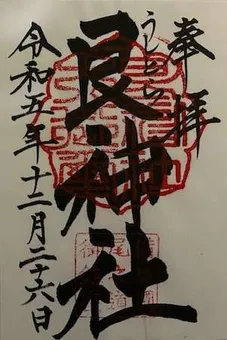 奉拝
うしとら
艮神社
令和五年十二月二十六日